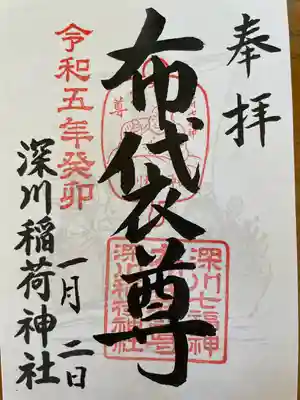 奉拝
布袋尊
令和五年癸卯
一月二日
深川稲荷神社
深川七福神
布袋尊
深川稲荷神社